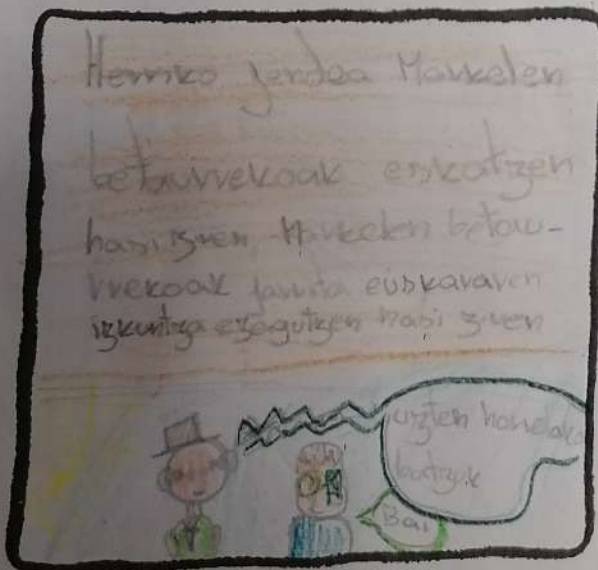 Herriko jendea Markelen
betaurrekoak eskatzen
hasi ziren, Markelen betau-
rrekoak jarrita euskararen
izkuntza ezagutzen hasi ziren
uzten
batzuk
Bai